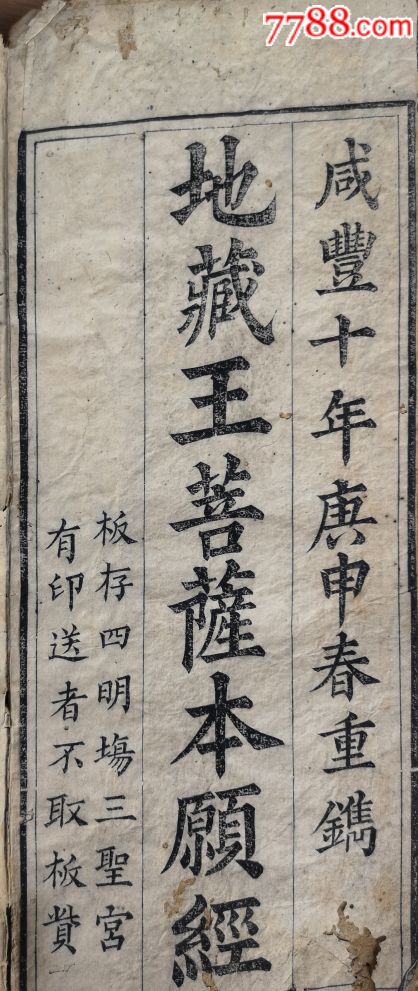 7788.com
咸豐十年庚申春重鐫
地藏王菩薩本願經
板存四明塲三聖宮
有印送者不取板貲